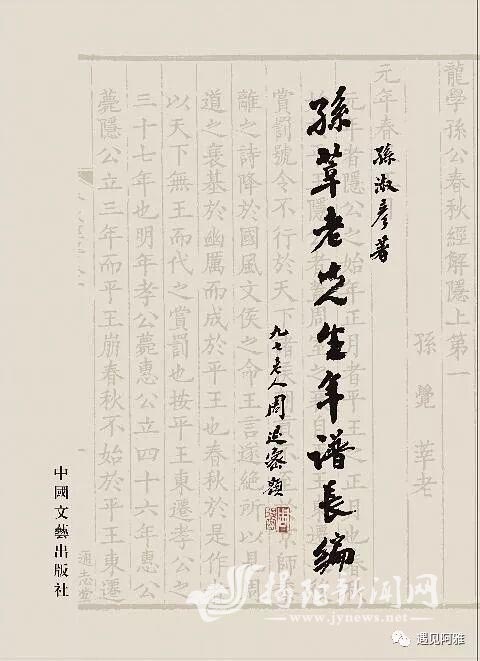 孫莘老先生年譜長編
孫淑彥著
九七老人周退密題
中國文藝出版社
龍學孫公春秋經解隱上第一
孫 覺 莘老
元年春
元年者隱公之始年正月者平王之正月也
賞罰號令不行於天下
離之詩降於國風文侯之命王言遂絶所以見周
道之衰基於幽厲而成於平王也春秋於是作
以天下無王而代之賞罰也按平王東遷孝公之
三十七年也明年孝公薨惠公立四十六年惠公
薨隱公立三年而平王崩春秋不始於平王東遷
通志堂
揭阳新闻网
www.jynews.net
遇见阿雅